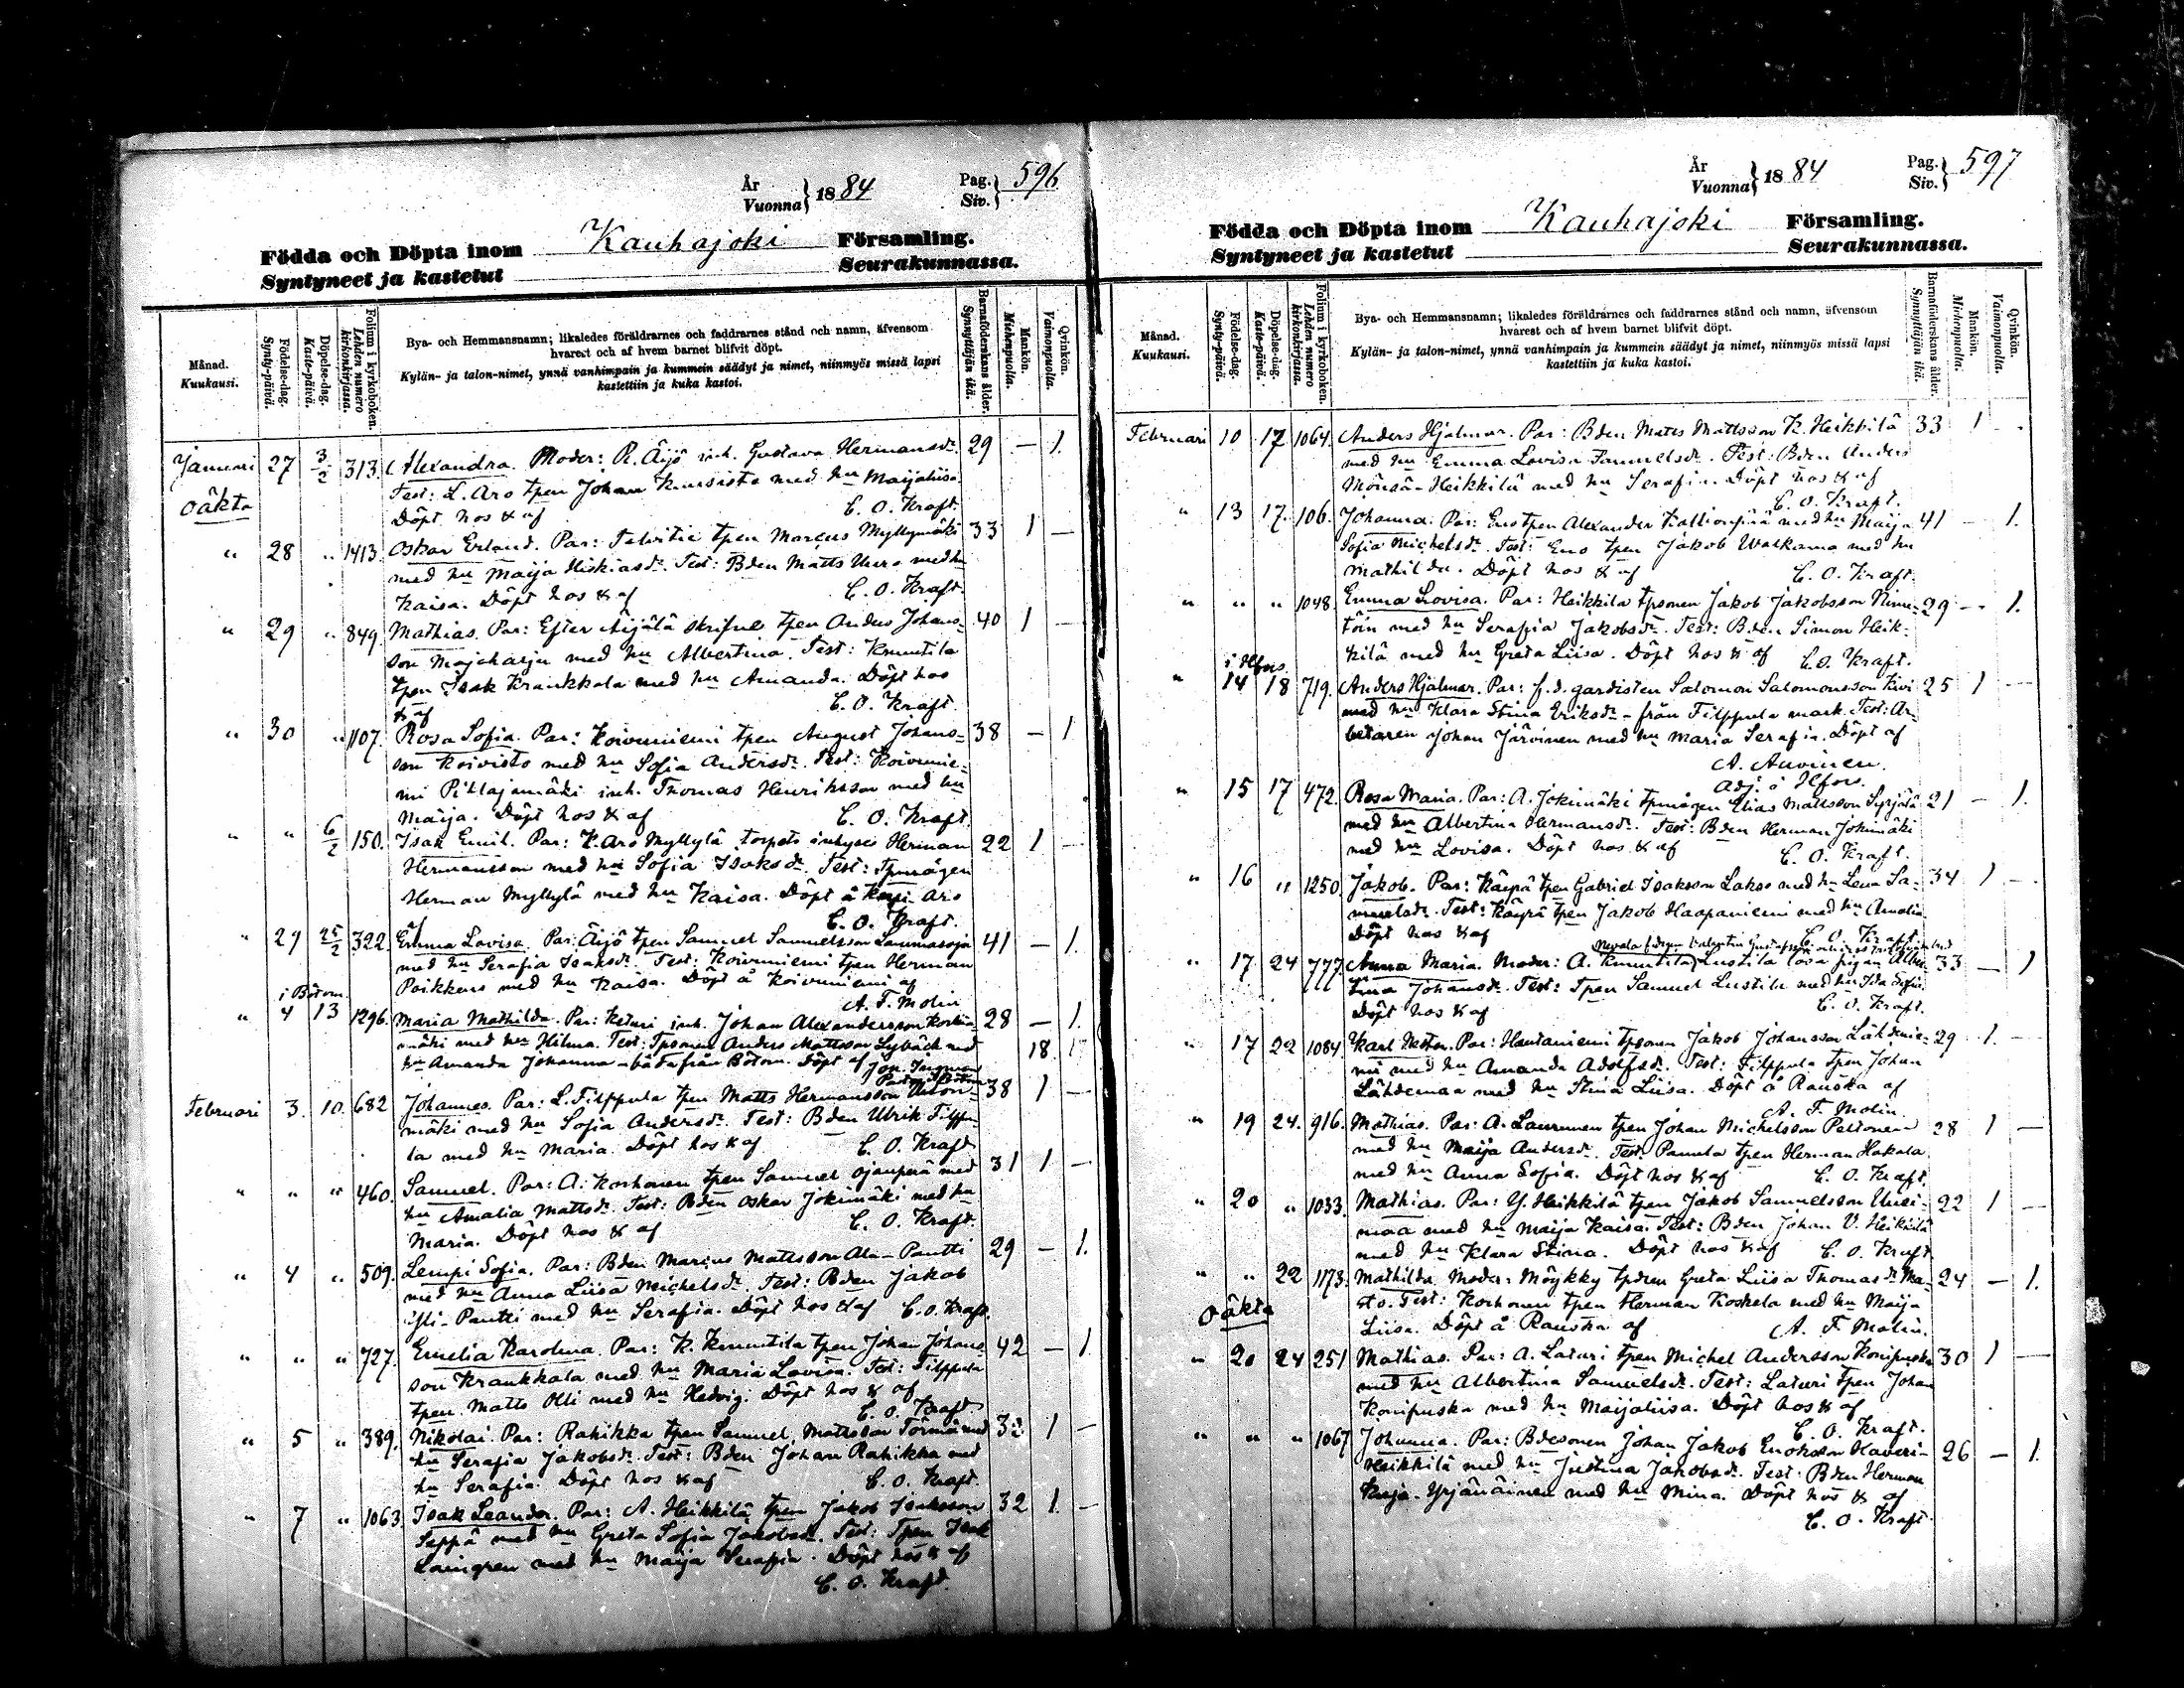 År
Vuonna } 1884
Pag.
Siv. } 596
Födda och Döpta inom Kauhajoki Församling.
Syntyneet ja kastetut Seurakunnassa.
Månad.
Kuukausi.
Födelse-dag.
Synty-päivä.
Döpelse-dag.
Kaste-päivä.
Folium i kyrkoboken.
Lehden numero kirkonkirjassa.
Bya- och Hemmansnamn; likaledes föräldrarnes och faddrarnes stånd och namn, äfvensom
hvarest och af hvem barnet blifvit döpt.
Kylän- ja talon-nimet, ynnä vanhimpain ja kummein säädyt ja nimet, niinmyös missä lapsi
kastettiin ja kuka kastoi.
Barnaföderskans ålder.
Synnyttäjän ikä.
Mankön.
Miehenpuolia.
Qvinkön.
Vaimonpuolia.
Januari 27 3/2 313. Alexandra. Moder: R. Äijö inh. Gustava Hermansdr. 29 — 1.
oäkta Test: L. Aro tpen Johan Kursisto med hu Maijaliisa
Döpt hos & af C. O. Kraft.
" 28 " 1413. Oskar Erland. Par: Telvitie tpen Marcus Myllymäki 33 1 —
med hu Maija Hiskiasdr. Test: Bden Matts Uuro med hu
Kaisa. Döpt hos & af C. O. Kraft.
" 29 " 849. Mathias. Par: Efter Äijälä skrifne tpen Anders Johans- 40 1 —
son Majaharju med hu Albertina. Test: Knuutila
tpen Isak Krankkala med hu Amanda. Döpt hos
& af C. O. Kraft.
" 30 " 1107. Rosa Sofia. Par: Koivuniemi tpen August Johans- 38 — 1
son Koivisto med hu Sofia Andersdr. Test: Koivunie-
mi Pihlajamäki inh. Thomas Henriksson med hu
Maija. Döpt hos & af C. O. Kraft.
" " 6/2 150. Isak Emil. Par: K. Aro Myllylä torpets inhyses Herman 22 1 —
Hermansson med hu Sofia Isaksdr. Test: Tpmågen
Herman Myllylä med hu Kaisa. Döpt å Aro
af C. O. Kraft.
" 29 25/2 322. Emma Lovisa. Par: Äijö tpen Samuel Samuelsson Lammasoja 41 — 1.
med hu Serafia Isaksdr. Test: Koivuniemi tpen Herman
Poikkeus med hu Kaisa. Döpt å Koivuniemi af
A. F. Molin
i Bötom
" 4 13 1296. Maria Mathilda. Par: Keturi inh. Johan Alexandersson Korkia- 28 — 1.
mäki med hu Hilma. Test: Tpsonen Anders Mattsson Lybäck med 18. 17
hu Amanda Johanna — båda från Bötom. Döpt af Joh. Ingman
Past. i Bötom
Februari 3. 10. 682 Johannes. Par: L. Filppula tpen Matts Hermansson 38 1 —
mäki med hu Sofia Andersdr. Test: Bden Ulrik Filppu-
la med hu Maria. Döpt hos & af C. O. Kraft
" " " 460. Samuel. Par: A. Korhonen tpen Samuel Ojanperä med 31 1 —
hu Amalia Mattsdr. Test: Bden Oskar Jokimäki med hu
Maria. Döpt hos & af C. O. Kraft.
" 4 " 509. Lempi Sofia. Par: Bden Marius Mattsson Ala-Pantti 29 — 1.
med hu Anna Liisa Michelsdr. Test: Bden Jakob
Yli-Pantti med hu Serafia. Döpt hos & af C. O. Kraft.
" " " 727. Emelia Karolina. Par: K. Knuutila tpen Johan Johans- 42 — 1.
son Krankkala med hu Maria Lovisa. Test: Filppula
tpen Matts Olli med hu Hedvig. Döpt hos & af
C. O. Kraft
" 5 " 389. Nikolai. Par: Rahikka tpen Samuel Mattsson Törmä med 32 1 —
hu Serafia Jakobsdr. Test: Bden Johan Rahikka med
hu Serafia. Döpt hos & af C. O. Kraft.
" 7 " 1063. Isak Leander. Par: A. Heikkilä tpen Jakob Isaksson 32 1. —
Seppä med hu Greta Sofia Jakobsdr. Test: Tpen Isak
med hu Maija Serafia. Döpt hos & af
C. O. Kraft.
År
Vuonna } 1884
Pag.
Siv. } 597
Födda och Döpta inom Kauhajoki Församling.
Syntyneet ja kastetut Seurakunnassa.
Månad.
Kuukausi.
Födelse-dag.
Synty-päivä.
Döpelse-dag.
Kaste-päivä.
Folium i kyrkoboken.
Lehden numero kirkonkirjassa.
Bya- och Hemmansnamn; likaledes föräldrarnes och faddrarnes stånd och namn, äfvensom
hvarest och af hvem barnet blifvit döpt.
Kylän- ja talon-nimet, ynnä vanhimpain ja kummein säädyt ja nimet, niinmyös missä lapsi
kastettiin ja kuka kastoi.
Barnaföderskans ålder.
Synnyttäjän ikä.
Mankön.
Miehenpuolia.
Qvinkön.
Vaimonpuolia.
Februari 10 17 1064. Anders Hjalmar. Par: Bden Matts Mattsson K. Heikkilä 33 1 .
med hu Emma Lovisa Samuelsdr. Test: Bden Anders
Mönsä-Heikkilä med hu Serafia. Döpt hos & af
C. O. Kraft.
" 13 17. 106. Johanna. Par: Eno tpen Alexander Kallionpää med hu Maija 41 — 1.
Sofia Michelsdr. Test: Eno tpen Jakob Walkama med hu
Mathilda. Döpt hos & af C. O. Kraft.
" " " 1048. Emma Lovisa. Par: Heikkilä tpsonen Jakob Jakobsson Nime- 29 — 1.
töin med hu Serafia Jakobsdr. Test: Bden Simon Heik-
kilä med hu Greta Liisa. Döpt hos & af C. O. Kraft.
i Hfors.
" 14 18 719. Anders Hjalmar. Par: f.d. gardisten Salomon Salomonsson Kivi 25 1 —
med hu Klara Stina Eriksdr — från Filppula mark. Test: Ar-
betaren Johan Järvinen med hu Maria Serafia. Döpt af
A. Auvinen.
adj. i Hfors.
" 15 17 472. Rosa Maria. Par: A. Jokimäki tpmågen Elias Mattsson Syrjälä 21 — 1.
med hu Albertina Hermansdr. Test: Bden Herman Jokimäki
med hu Lovisa. Döpt hos & af C. O. Kraft.
" 16 " 1250. Jakob. Par: Käyrä tpen Gabriel Isaksson Lakso med hu Lena Sa- 34 1 —
muelsdr. Test: Käyrä tpen Jakob Haapaniemi med hu Amalia
Döpt hos & af C. O. Kraft.
" 17 24 777. Anna Maria. Moder: A. Knuutila Lustila lösa pigan Alber- 33 — 1
tina Johansdr. Test: Tpen Samuel Lustila med hu Ida Sofia.
Döpt hos & af C. O. Kraft.
" 17 22 1084. Karl Nestor. Par: Hautaniemi tpsonen Jakob Johansson Lähdenie- 29 1. —
mi med hu Amanda Adolfsdr. Test: Filppula tpen Johan
Lähdemaa med hu Stina Liisa. Döpt å Rauska af
A. F. Molin.
" 19 24. 916. Mathias. Par: A. Laurunen tpen Johan Michelsson Peltonen 28 1 —
med hu Maija Andersdr. Test. Panula tpen Herman Hakala
med hu Anna Sofia. Döpt hos & af C. O. Kraft.
" 20 " 1033. Mathias. Par: Y. Heikkilä tpen Jakob Samuelsson Uusi- 22 1 —
maa med hu Maija Kaisa. Test: Bden Johan V. Heikkilä
med hu Klara Stina. Döpt hos & af C. O. Kraft
" " 22 1173. Mathilda. Moder: Möykky tpdren Greta Liisa Thomasdr Ma- 24 — 1.
oäkta sto. Test: Korhonen tpen Herman Koskela med hu Maija
Liisa. Döpt å Rauska af A. F. Molin.
" 20 24 251 Mathias. Par: A. Laturi tpen Michel Andersson Konipuska 30 1 —
med hu Albertina Samuelsdr. Test: Laturi tpen Johan
Konipuska med hu Maijaliisa. Döpt hos & af
C. O. Kraft.
" " " 1067 Johanna. Par: Bdesonen Johan Jakob Enoksson Havari- 26 — 1.
Heikkilä med hu Justina Jakobsdr. Test: Bden Herman
Kuja-Yrjänäinen med hu Mina. Döpt hos & af
C. O. Kraft.